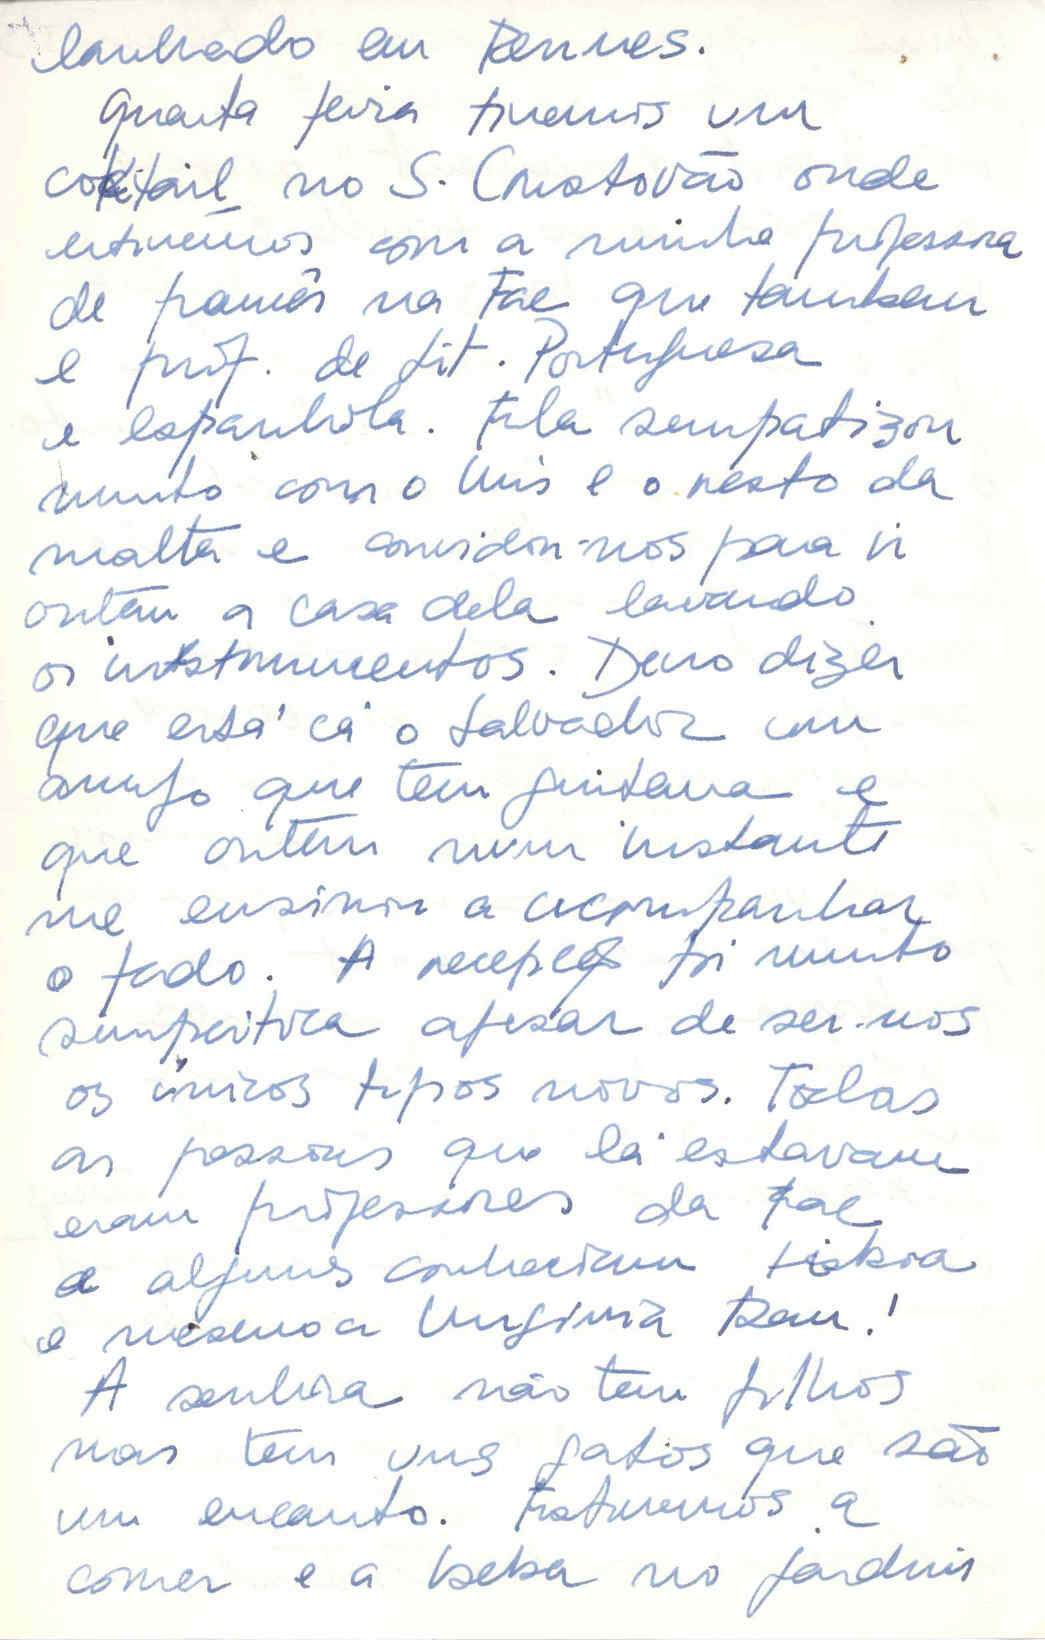 em Rennes.
Quarta feira tivemos um
coktail no S. Cristovão onde
estivémos com a minha professora
de francês na Fac que tambem
e prof. de Lit. Portuguesa
e espanhola. Ela simpatizou
muito com o Luis e o resto da
malta e convidou-nos para ir
ontem a casa dela levando
os instrumentos. Devo dizer
que está cá o Salvador um
amigo que tem guitarra e
que ontem num instante
me ensinou a acompanhar
o fado. A recepção foi muito
simpática apesar de ser-mos
os únicos tipos novos. Todas
as pessoas que lá estavam
eram professores da Fac
e alguns conheciam Lisboa
e mesmo a Virginia Rau!
A senhora não tem filhos
mas tem uns gatos que são
um encanto. Estivemos a
comer e a beber no jardim